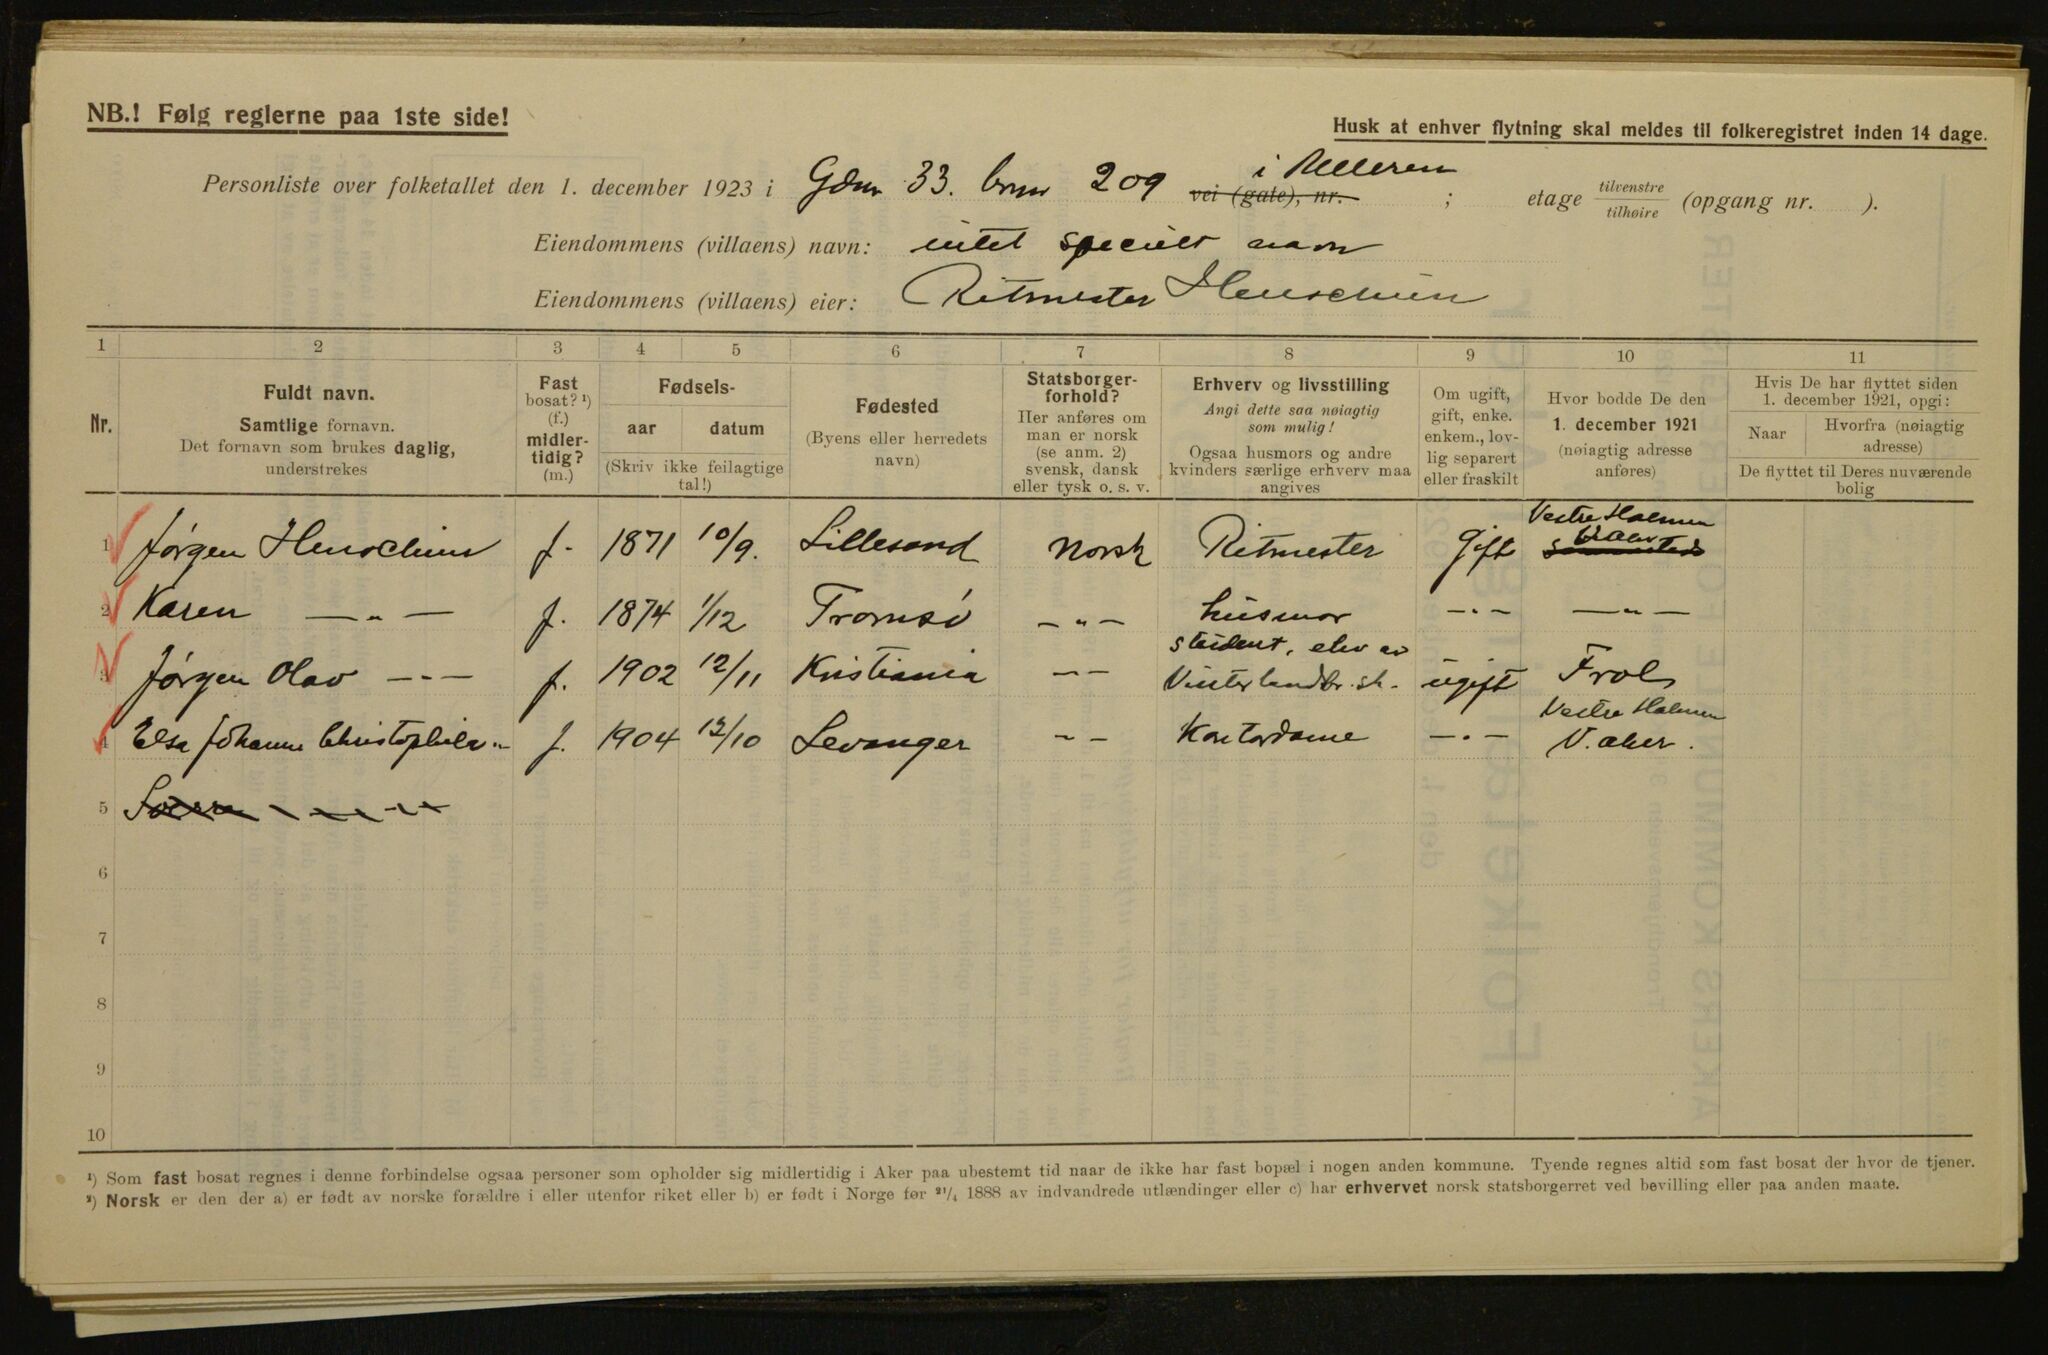 NB.! Følg reglerne paa 1ste side!
Husk at enhver flytning skal meldes til folkeregistret inden 14 dage.
Personliste over folketallet den 1. december 1923 i Gdnr 33. brnr 209 vei (gate), nr. i Ulleren ; etage tilvenstre tilhøire (opgang nr. ).
Eiendommens (villaens) navn: intet specielt navn
Eiendommens (villaens) eier: Ritmester Henschien
1 2 3 4 5 6 7 8 9 10 11
Nr.
Fuldt navn.
Samtlige fornavn.
Det fornavn som brukes daglig,
understrekes
Fast
bosat? ¹)
(f.)
midler-
tidig?
(m.)
Fødsels-
aar datum
(Skriv ikke feilagtige
tal!)
Fødested
(Byens eller herredets
navn)
Statsborger-
forhold?
Her anføres om
man er norsk
(se anm. 2)
svensk, dansk
eller tysk o. s. v.
Erhverv og livsstilling
Angi dette saa nøiagtig
som mulig!
Ogsaa husmors og andre
kvinders særlige erhverv maa
angives
Om ugift,
gift, enke.
enkem., lov-
lig separert
eller fraskilt
Hvor bodde De den
1. december 1921
(nøiagtig adresse
anføres)
Hvis De har flyttet siden
1. december 1921, opgi:
Naar Hvorfra (nøiagtig
adresse)
De flyttet til Deres nuværende
bolig
Vestre Holmen
1 Jørgen Henschien f. 1871 10/9. Lillesand Norsk Ritmester Gift V. Aker
2 Karen — „ — f. 1874 1/12 Tromsø — „ — husmor — „ — — „ —
student, elev av
3 Jørgen Olav — „ — f. 1902 12/11 Kristiania — „ — Vinterlandbr. sk. ugift Frol
Vestre Holmen
4 Elsa Johanne Christophila „ f. 1904 12/10 Levanger — „ — Kontordame — „ — V. aker.
5
6
7
8
9
10
¹) Som fast bosat regnes i denne forbindelse ogsaa personer som opholder sig midlertidig i Aker paa ubestemt tid naar de ikke har fast bopæl i nogen anden kommune. Tyende regnes altid som fast bosat der hvor de tjener.
²) Norsk er den der a) er født av norske forældre i eller utenfor riket eller b) er født i Norge før ²¹/₄ 1888 av indvandrede utlændinger eller c) har erhvervet norsk statsborgerret ved bevilling eller paa anden maate.